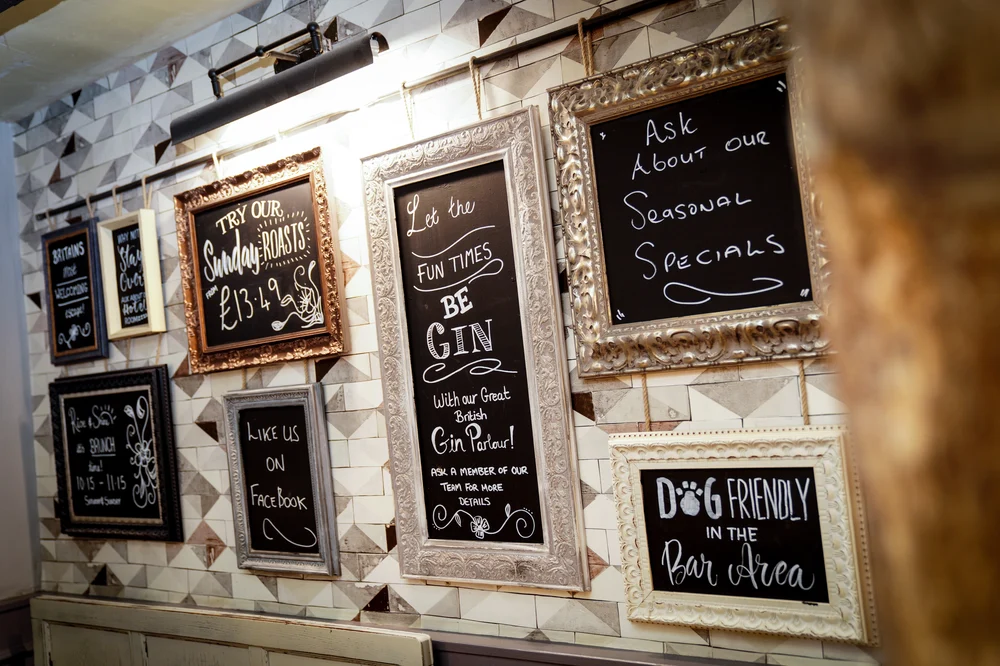 BRITAINS
MOST
WELCOMING
ESCAPE!
WHY NOT
Stay
Over
TRY OUR
Sunday ROASTS
FROM
£13.49
Let the
FUN TIMES
BE
GIN
With our Great
British
Gin Parlour!
ASK A MEMBER OF OUR
TEAM FOR MORE
DETAILS
Ask
About our
Seasonal
Specials
Rise & Shine
its BRUNCH
time!
10:15 - 11:15
LIKE US
ON
FACEBOOK
DOG FRIENDLY
IN THE
Bar Area